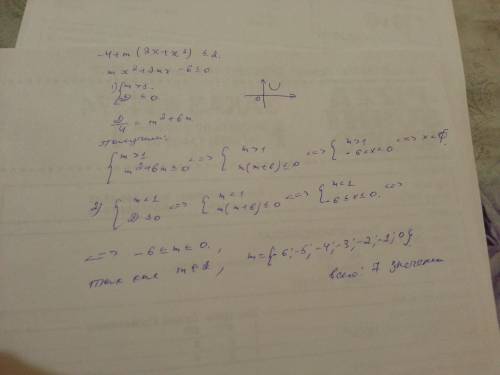 -4+m(2x+x²) ≤ 2.
mx²+2mx-6≤0.
1) { m>1. D≤0
0
D/4 = m²+6m.
получим:
{ m>1 m²+6m≤0 <=> { m>1 m(m+6)≤0 <=> { m>1 -6<x≤0 <=> x=∅
2) { m<1 D≤0 <=> { m<1 m(m+6)≤0 <=> { m<1 -6≤x≤0 <=>
<=> -6≤m≤0.,
так как m∈Z, m={-6;-5;-4;-3;-2;-1;0}
всего: 7 значений